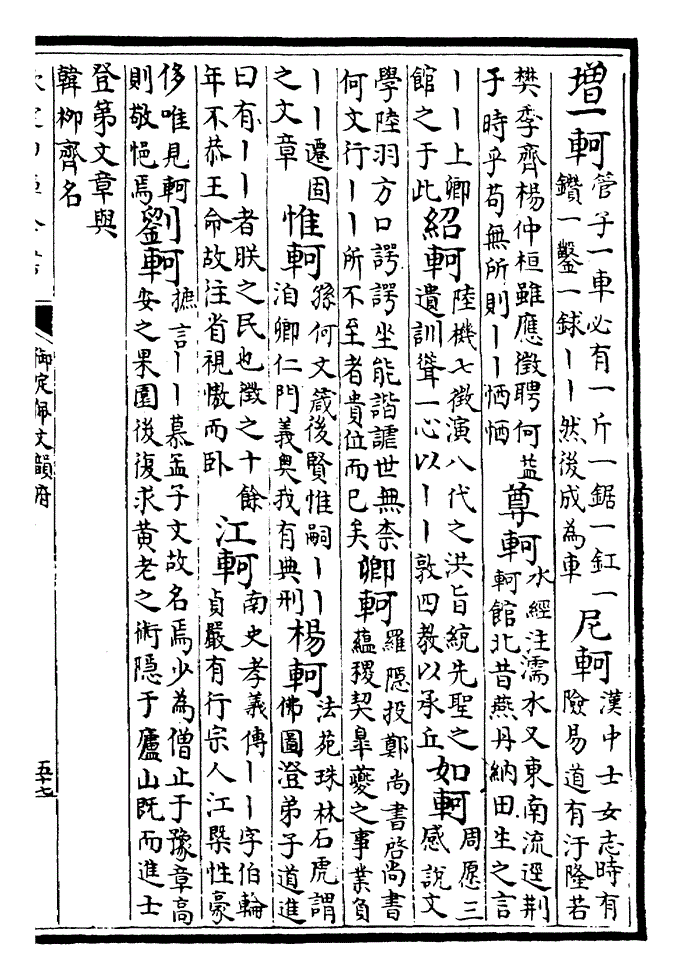 增一軻管子一車必有一斤一鋸一釭一
鑽一鑿一銶丨丨然後成為車
尼軻漢中士女志時有
險易道有汙隆若
樊季齊楊仲桓雖應徵聘何益
于時乎苟無所則丨丨恓恓
尊軻水經注濡水又東南流逕荆
軻館北昔燕丹納田生之言
丨丨上卿
館之于此
紹軻陸機七徵演八代之洪旨統先聖之
遺訓聳一心以丨丨敦四教以承丘
如軻周愿三
感說文
學陸羽方口諤諤坐能諧謔世無柰
何文行丨丨所不至者貴位而已矣
卿軻羅隠投鄭尚書啓尚書
藴稷契臯夔之事業負
丨丨遷固
之文章
惟軻孫何文箴後賢惟嗣丨丨
洎卿仁門義奥我有典刑
楊軻法苑珠林石虎謂
佛圖澄弟子道進
曰有丨丨者朕之民也徵之十餘
年不恭王命故往省視慠而卧
江軻南史孝義傳丨丨字伯輪
貞嚴有行宗人江槩性豪
侈唯見軻
則敬悒焉
劉軻摭言丨丨慕孟子文故名焉少為僧止于豫章高
安之果園後復求黄老之術隠于廬山既而進士
登第文章與
韓柳齊名
御定佩文韻府
五十七